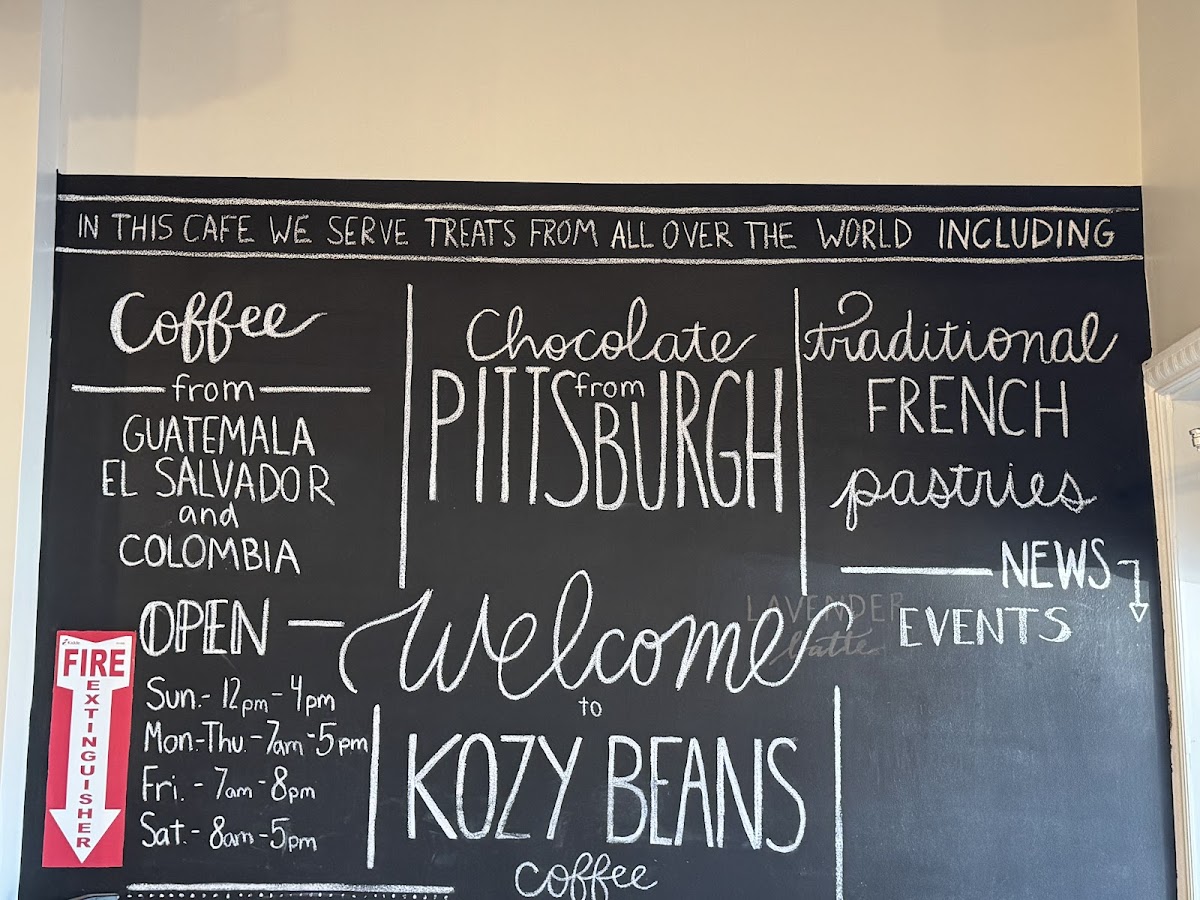 IN THIS CAFE WE SERVE TREATS FROM ALL OVER THE WORLD INCLUDING
Coffee
from
GUATEMALA
EL SALVADOR
and
COLOMBIA
Chocolate
from
PITTSBURGH
traditional
FRENCH
pastries
NEWS
EVENTS
LAVENDER
Latte
OPEN
Sun.- 12pm-4pm
Mon-Thu.-7am-5pm
Fri. - 7am-8pm
Sat.- 8am-5pm
Welcome
to
KOZY BEANS
coffee
FIRE
EXTINGUISHER